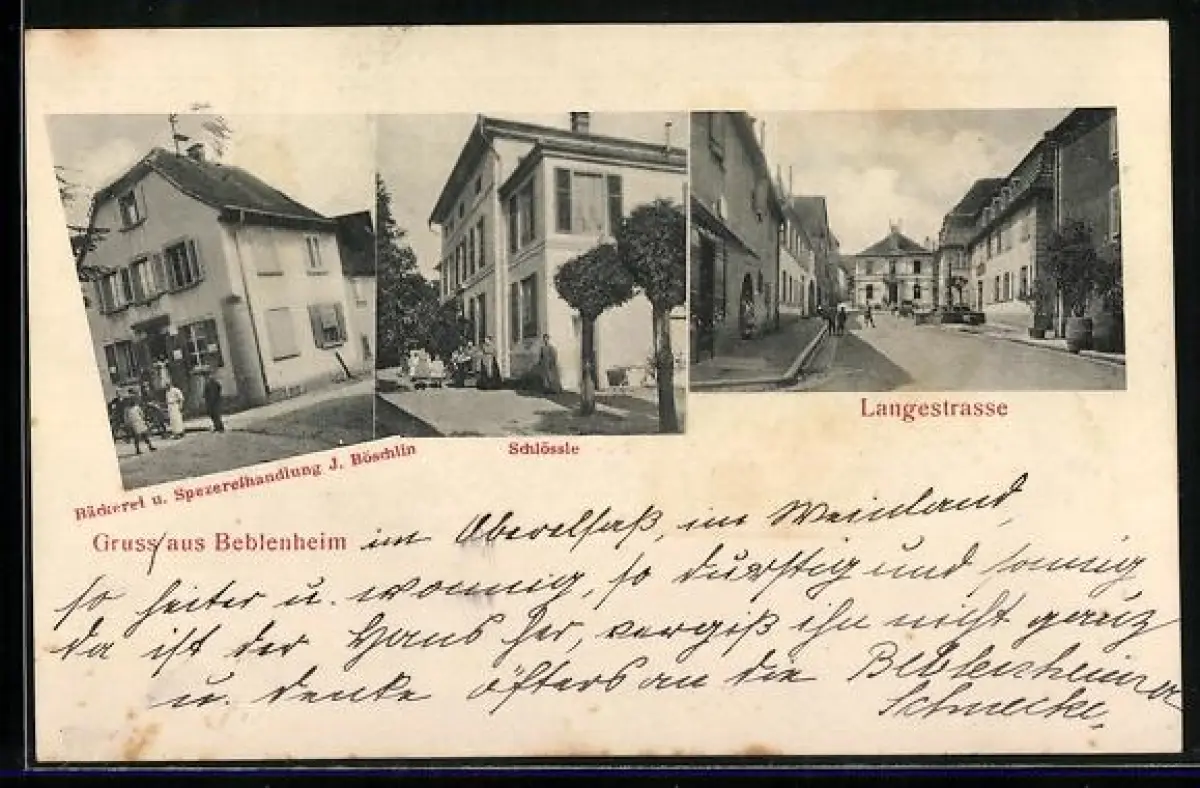 Bäckerei u. Spezereihandlung J. Böschlin
Schlössle
Langestrasse
Gruss aus Beblenheim im Oberelsaß, im Weinland,
so heiter u. wonnig, so durstig und sonnig
da ist der Hans her, vergiß ihn nicht ganz
u. denke öfters an die Beblenheimer
Schnecke.